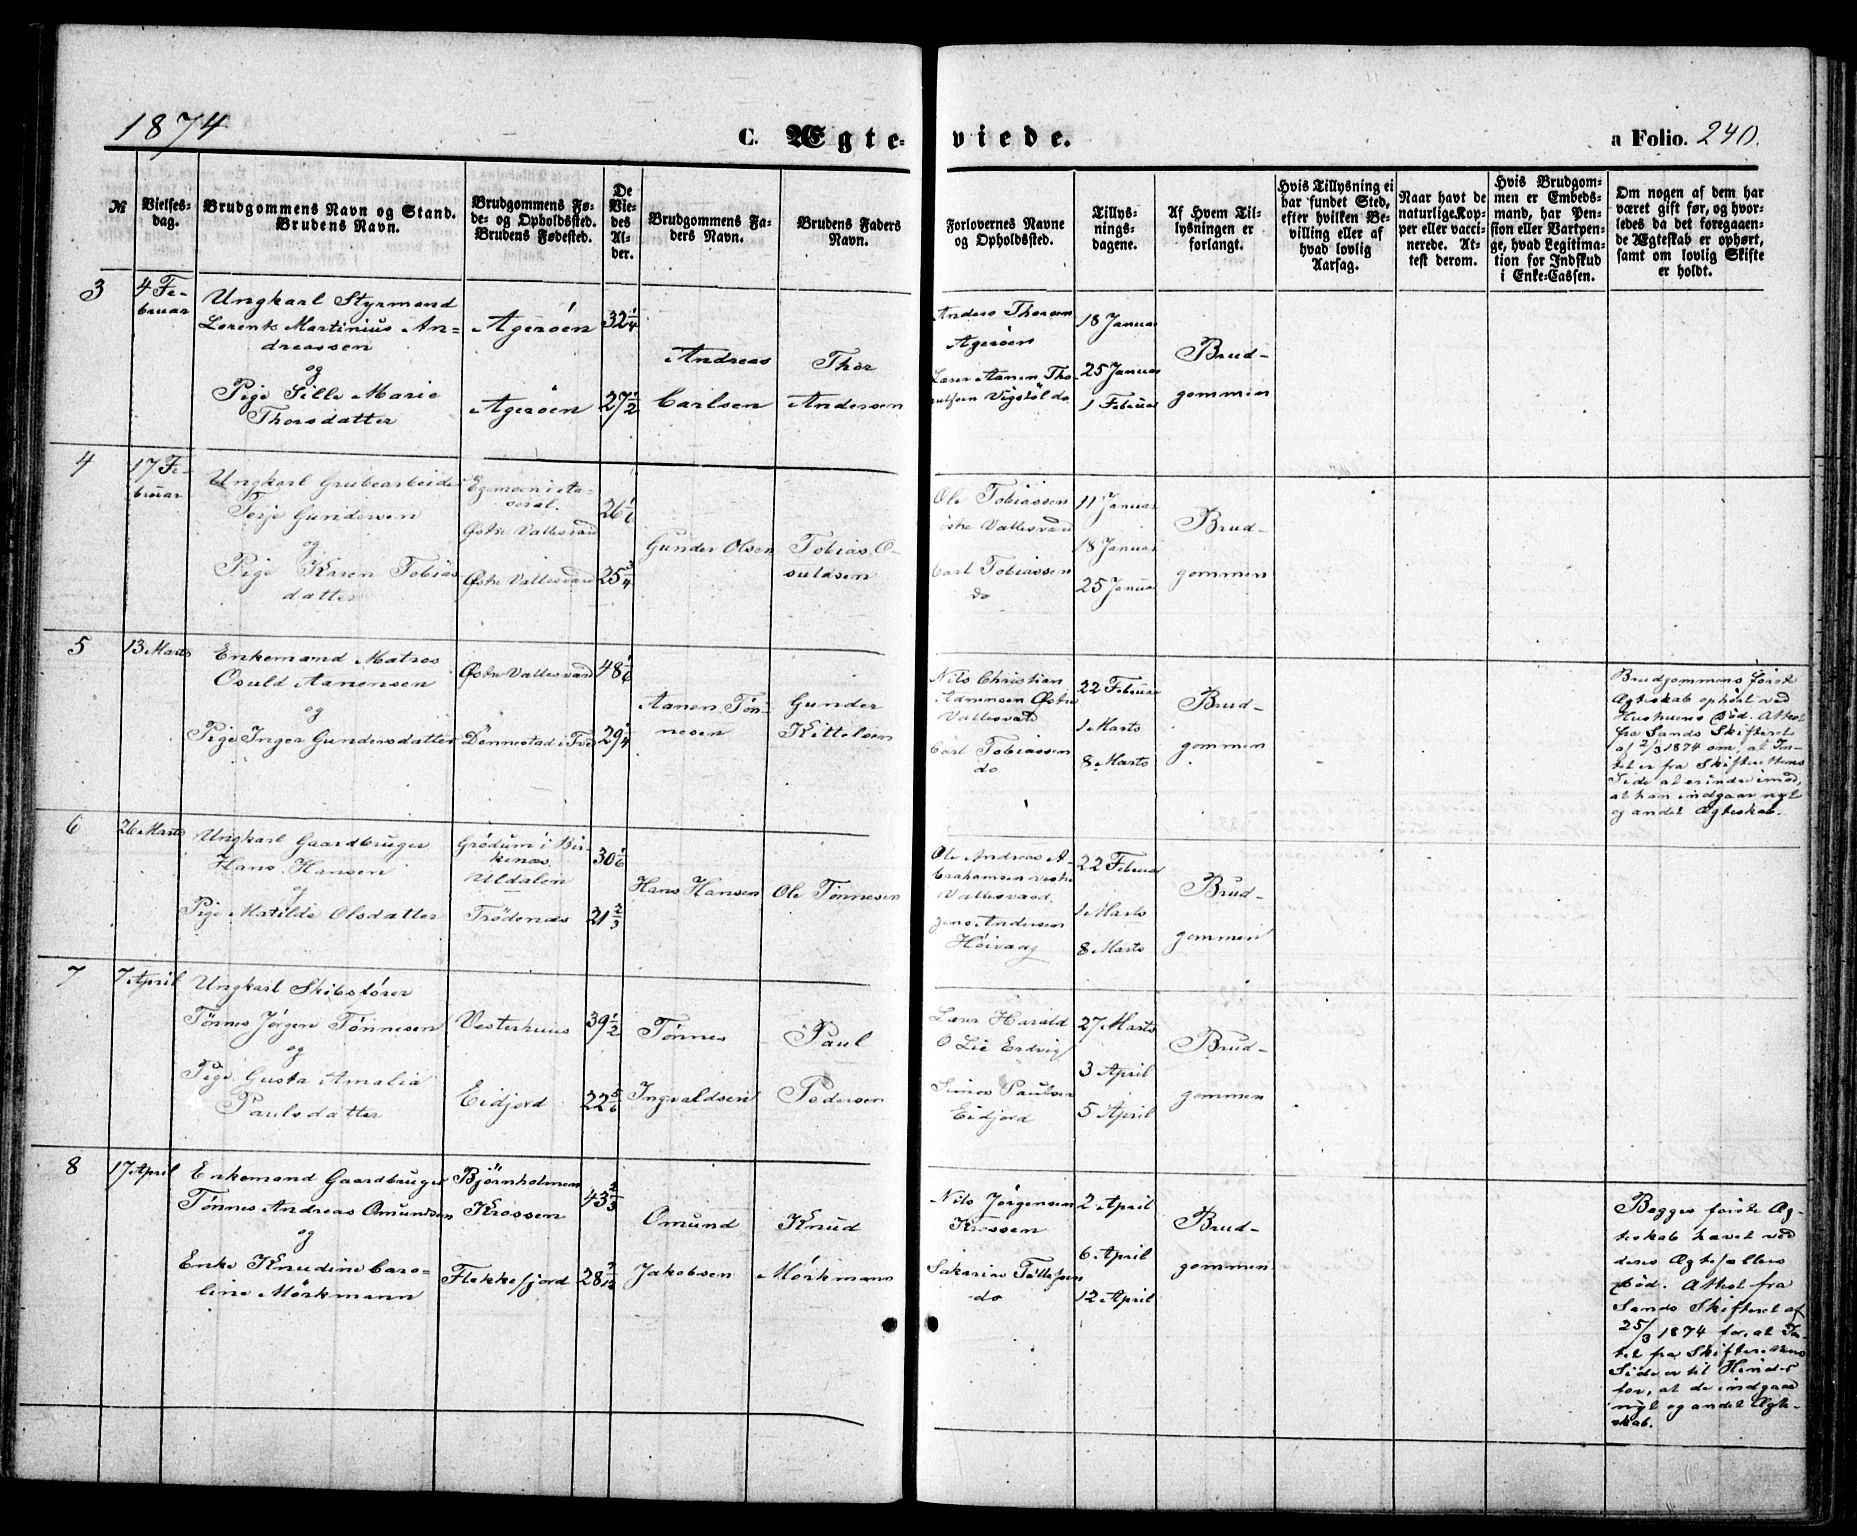 1874
C. Ægte-
viede.
a Folio. 240.
№
Vielses-
dag.
Brudgommens Navn og Stand.
Brudens Navn.
Brudgommens Fø-
de- og Opholdsted.
Brudens Fødested.
De
Vie-
des
Al-
der.
Brudgommens Fa-
ders Navn.
Brudens Faders
Navn.
Forlovernes Navne
og Opholdsted.
Tillys-
nings-
dagene.
Af Hvem Til-
lysningen er
forlangt.
Hvis Tillysning ei
har fundet Sted,
efter hvilken Be-
villing eller af
hvad lovlig
Aarsag.
Naar havt de
naturlige Kop-
per eller vacci-
nerede. At-
test derom.
Hvis Brudgom-
men er Embeds-
mand, har Pen-
sion eller Vartpen-
ge, hvad Legitima-
tion for Indskud
i Enke-Cassen.
Om nogen af dem har
været gift før, og hvor-
ledes da det foregaaen-
de Ægteskab er ophørt,
samt om lovlig Skifte
er holdt.
3
4 Fe-
bruar
Ungkarl Styrmand
Lorents Martinius An-
dreassen
og
Pige Sille Marie
Thorsdatter
Agerøen
Agerøen
32 1/4
27 1/2
Andreas
Carlsen
Thor
Andersen
Anders Thorsen
Agerøen
Lærer Aanen Tho-
Vigstøl do
18 Januar
25 Januar
1 Februar
Brud-
gommen
4
17 Fe-
bruar
Ungkarl Grubearbeider
Terje Gundersen
og
Pige Karen Tobias
datter
Egemoen i Aa-
seral.
Østre Vallesværd
Østre Vallesværd
26 1/6
25 3/4
Gunder Olsen
Tobias O-
suldsen
Ole Tobiassen
østre Vallesværd
Carl Tobiassen
do
11 Januar
18 Januar
25 Januar
Brud-
gommen
5
13 Marts
Enkemand Matros
Osuld Aanensen
og
Pige Inger Gundersdatter
Østre Vallesværd
Dønnestad i Tved
48 1/6
29 1/4
Aanen Tøn-
nesen
Gunder
Kittelsen
Nils Christian
Aanensen Østre
Vallesværd
Carl Tobiassen
do
22 Februar
1 Marts
8 Marts
Brud-
gommen
Brudgommens første
Ægteskab ophørt ved
Hustruens Død. Attest
fra Sands Skifteret
af 2/3 1874 om, at In-
tet er fra Skifterettens
Side at erindre imod,
at han indgaar nyt
og andet Ægteskab.
6
26 Marts
Ungkarl Gaardbruger
Hans Hansen
og
Pige Matilde Olsdatter
Grødum i Bir-
kenæs.
Uldalen
Trødenæs
30 1/6
21 2/3
Hans Hansen
Ole Tønnesen
Ole Andreas A-
brahamsen vestre
Vallesværd.
Jens Andersen
Høivaag
22 Februar
1 Marts
8 Marts
Brud-
gommen
7
7 April
Ungkarl Skibsfører
Tønnes Jørgen Tønnesen
og
Pige Gusta Amalia
Paulsdatter
Vesterhuus
Eidjord
39 1/2
22 5/6
Tønnes
Ingvaldsen
Paul
Pedersen
Lærer Harald
O Lie Erdvig
Simon Paulsen
Eidjord
27 Marts
3 April
5 April
Brud-
gommen
8
17 April
Enkemand Gaardbruger
Tønnes Andreas Omundsen
og
Enke Knudine Caro-
line Mørkmann
Bjørnholmen
Krossen
Flekkefjord
43 2/3
28 7/12
Omund
Jakobsen
Knud
Mørkmann
Nils Jørgensen
Krossen
Sakarias Tellefsen
do
2 April
6 April
12 April
Brud-
gommen
Begges første Æg-
teskab hævet ved
deres Ægtefællers
Død. Attest fra
Sands Skifteret af
25/3 1874 for, at In-
tet fra Skifterettens
Side er til Hinder
for, at de indgaar
nyt og andet Ægte-
skab.